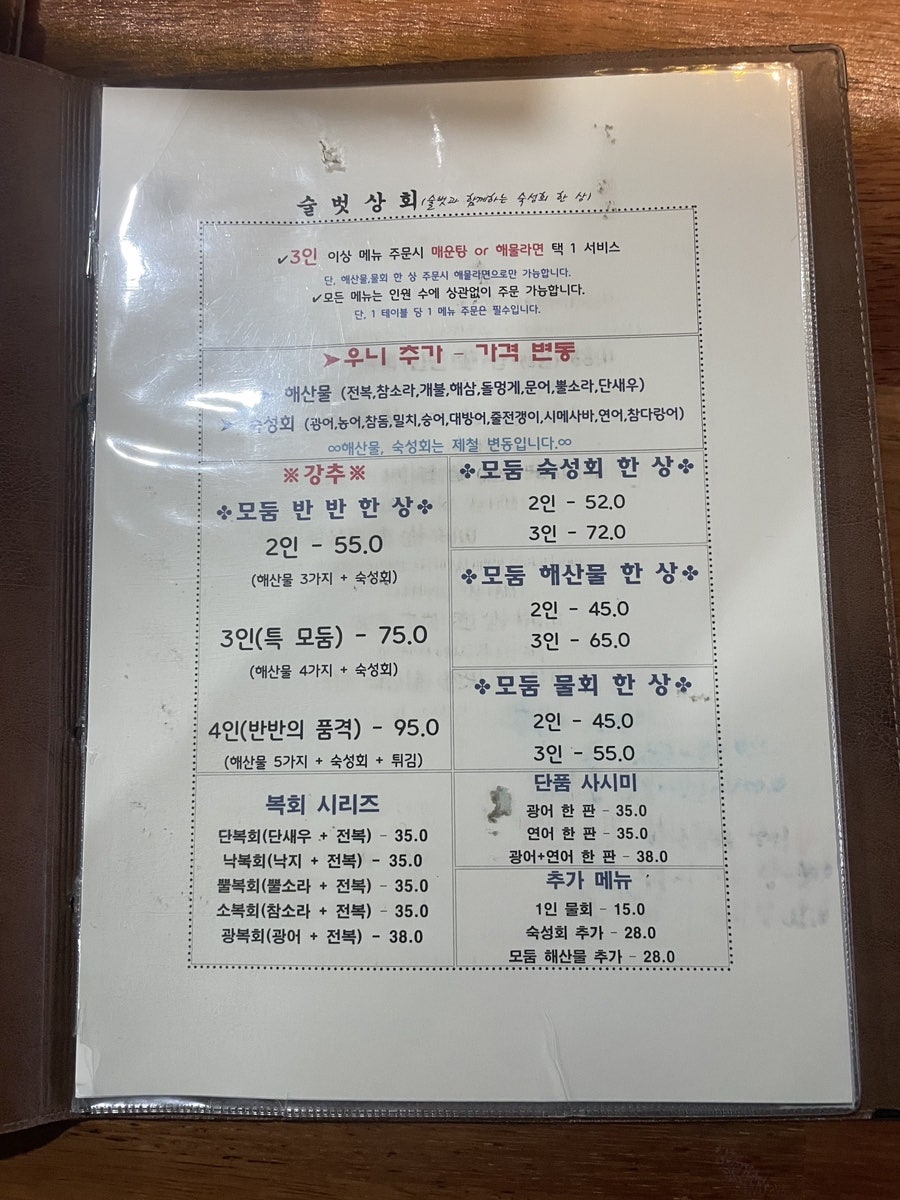 술벗상회(술벗과 함께하는 숙성회 한 상)
✔3인 이상 메뉴 주문시 매운탕 or 해물라면 택 1 서비스
단, 해산물,물회 한 상 주문시 해물라면으로만 가능합니다.
✔모든 메뉴는 인원 수에 상관없이 주문 가능합니다.
단, 1 테이블 당 1 메뉴 주문은 필수입니다.
➤우니 추가 - 가격 변동
해산물 (전복,참소라,개불,해삼,돌멍게,문어,뿔소라,단새우)
➤ 숙성회 (광어,농어,참돔,밀치,숭어,대방어,줄전갱이,시메사바,연어,참다랑어)
∞해산물, 숙성회는 제철 변동입니다.∞
※강추※
✤모둠 반 반 한 상✤
2인 - 55.0
(해산물 3가지 + 숙성회)
3인(특 모둠) - 75.0
(해산물 4가지 + 숙성회)
4인(반반의 품격) - 95.0
(해산물 5가지 + 숙성회 + 튀김)
✤모둠 숙성회 한 상✤
2인 - 52.0
3인 - 72.0
✤모둠 해산물 한 상✤
2인 - 45.0
3인 - 65.0
✤모둠 물회 한 상✤
2인 - 45.0
3인 - 55.0
복회 시리즈
단복회(단새우 + 전복) - 35.0
낙복회(낙지 + 전복) - 35.0
뿔복회(뿔소라 + 전복) - 35.0
소복회(참소라 + 전복) - 35.0
광복회(광어 + 전복) - 38.0
단품 사시미
광어 한 판 - 35.0
연어 한 판 - 35.0
광어+연어 한 판 - 38.0
추가 메뉴
1인 물회 - 15.0
숙성회 추가 - 28.0
모둠 해산물 추가 - 28.0